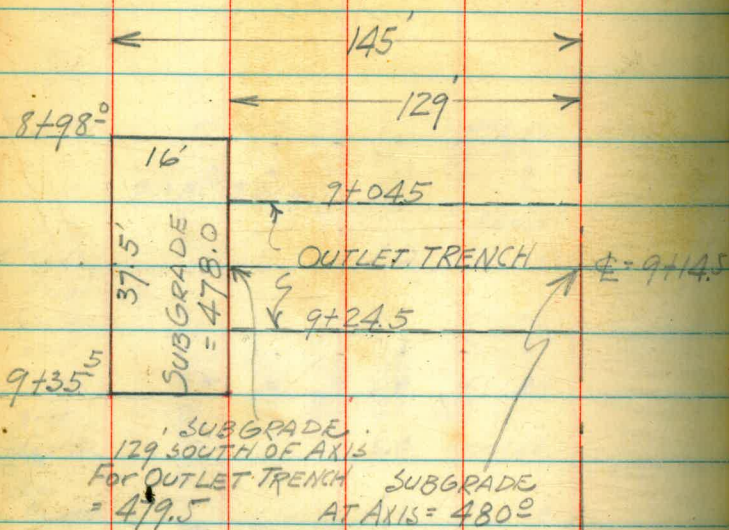 145'
129'
8+98.0
16'
9+04.5
37.5'
SUBGRADE
= 478.0
OUTLET TRENCH
℄ = 9+14.5
9+24.5
9+35.5
SUBGRADE
129' SOUTH OF AXIS
For OUTLET TRENCH
= 479.5
SUBGRADE
AT AXIS = 480.0